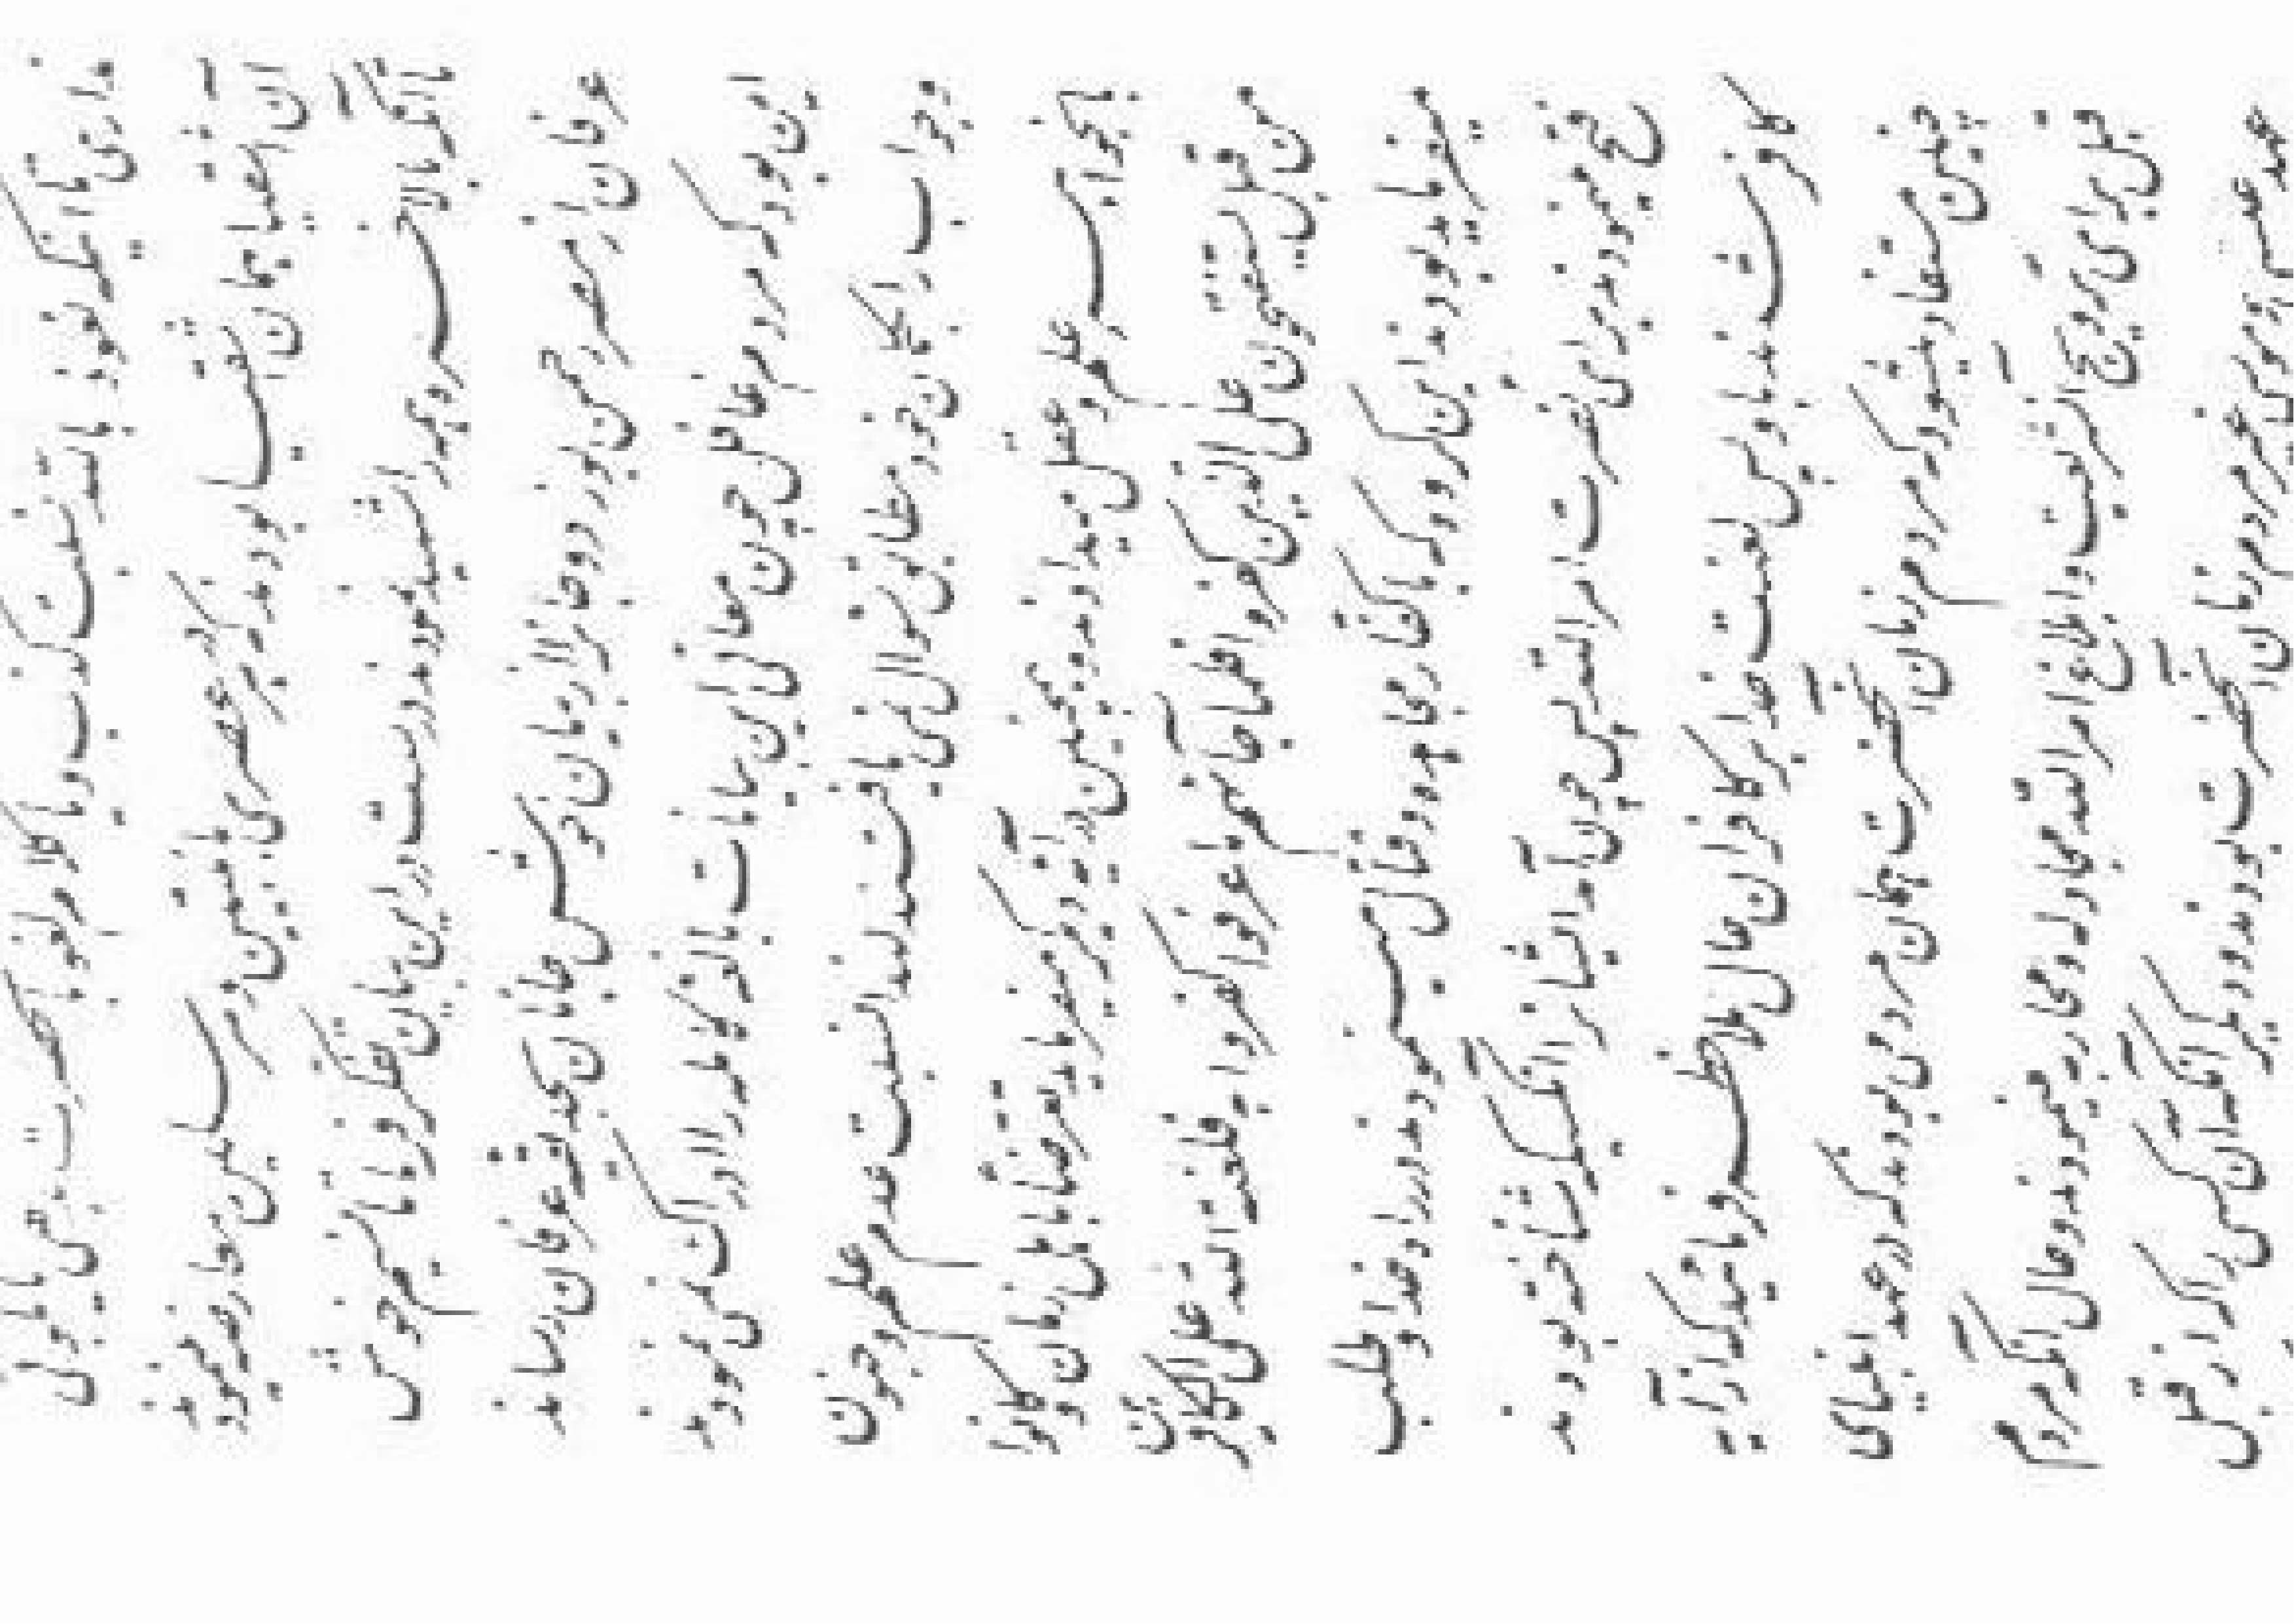 داری تا آنکه نعوذ بالله نسبت کذب و یا کلام لغو بآنحضرت
آن اشقیا همان اشقیا بودند که در هر عصری با نبیین و مرسلین معارضه مینمودند
تا آنکه بالاخره جمیع را شهید نمودند درست در این بیان تفکر فرما تا نسیم خوش
عرفان از مصر رحمن بوزد و جان را از بیان خوش جانان بحدیقه عرفان رساند
این بود که مردم غافل چون معانی این بیانات بالغه کامله را ادراک نمی نمودند
و جواب را بگمان خود مطابق سؤال نمی یافتند لهذا نسبت عدم علم و جنون
بجواهر علم و عقل میدادند و همچنین در آیه دیگر میفرماید تعرضاً باهل زمان و کانوا
من قبل یستفتحون علی الذین کفروا فلما جاءهم ما عرفوا کفروا به فلعنة الله علی الکافرین
میفرماید بودند این گروه که با کفار مجادله و قتال مینمودند در راه خدا و طلب
فتح مینمودند برای نصرت امر الله پس چون آمد ایشان را آنکسیکه شناخته بودند
کافر شدند باو پس لعنت خدا بر کافران حال ملاحظه فرمائید که از آیه
چنین مستفاد میشود که مردم زمان آنحضرت همان مردمی بودند که در عهد انبیای
قبل برای ترویج آن شریعت و ابلاغ امر الله مجادله و محاربه مینمودند و حال آنکه مردم
عهد عیسی و موسی غیر مردم زمان آنحضرت بودند و دیگر آنکه آن کسی را که از قبل